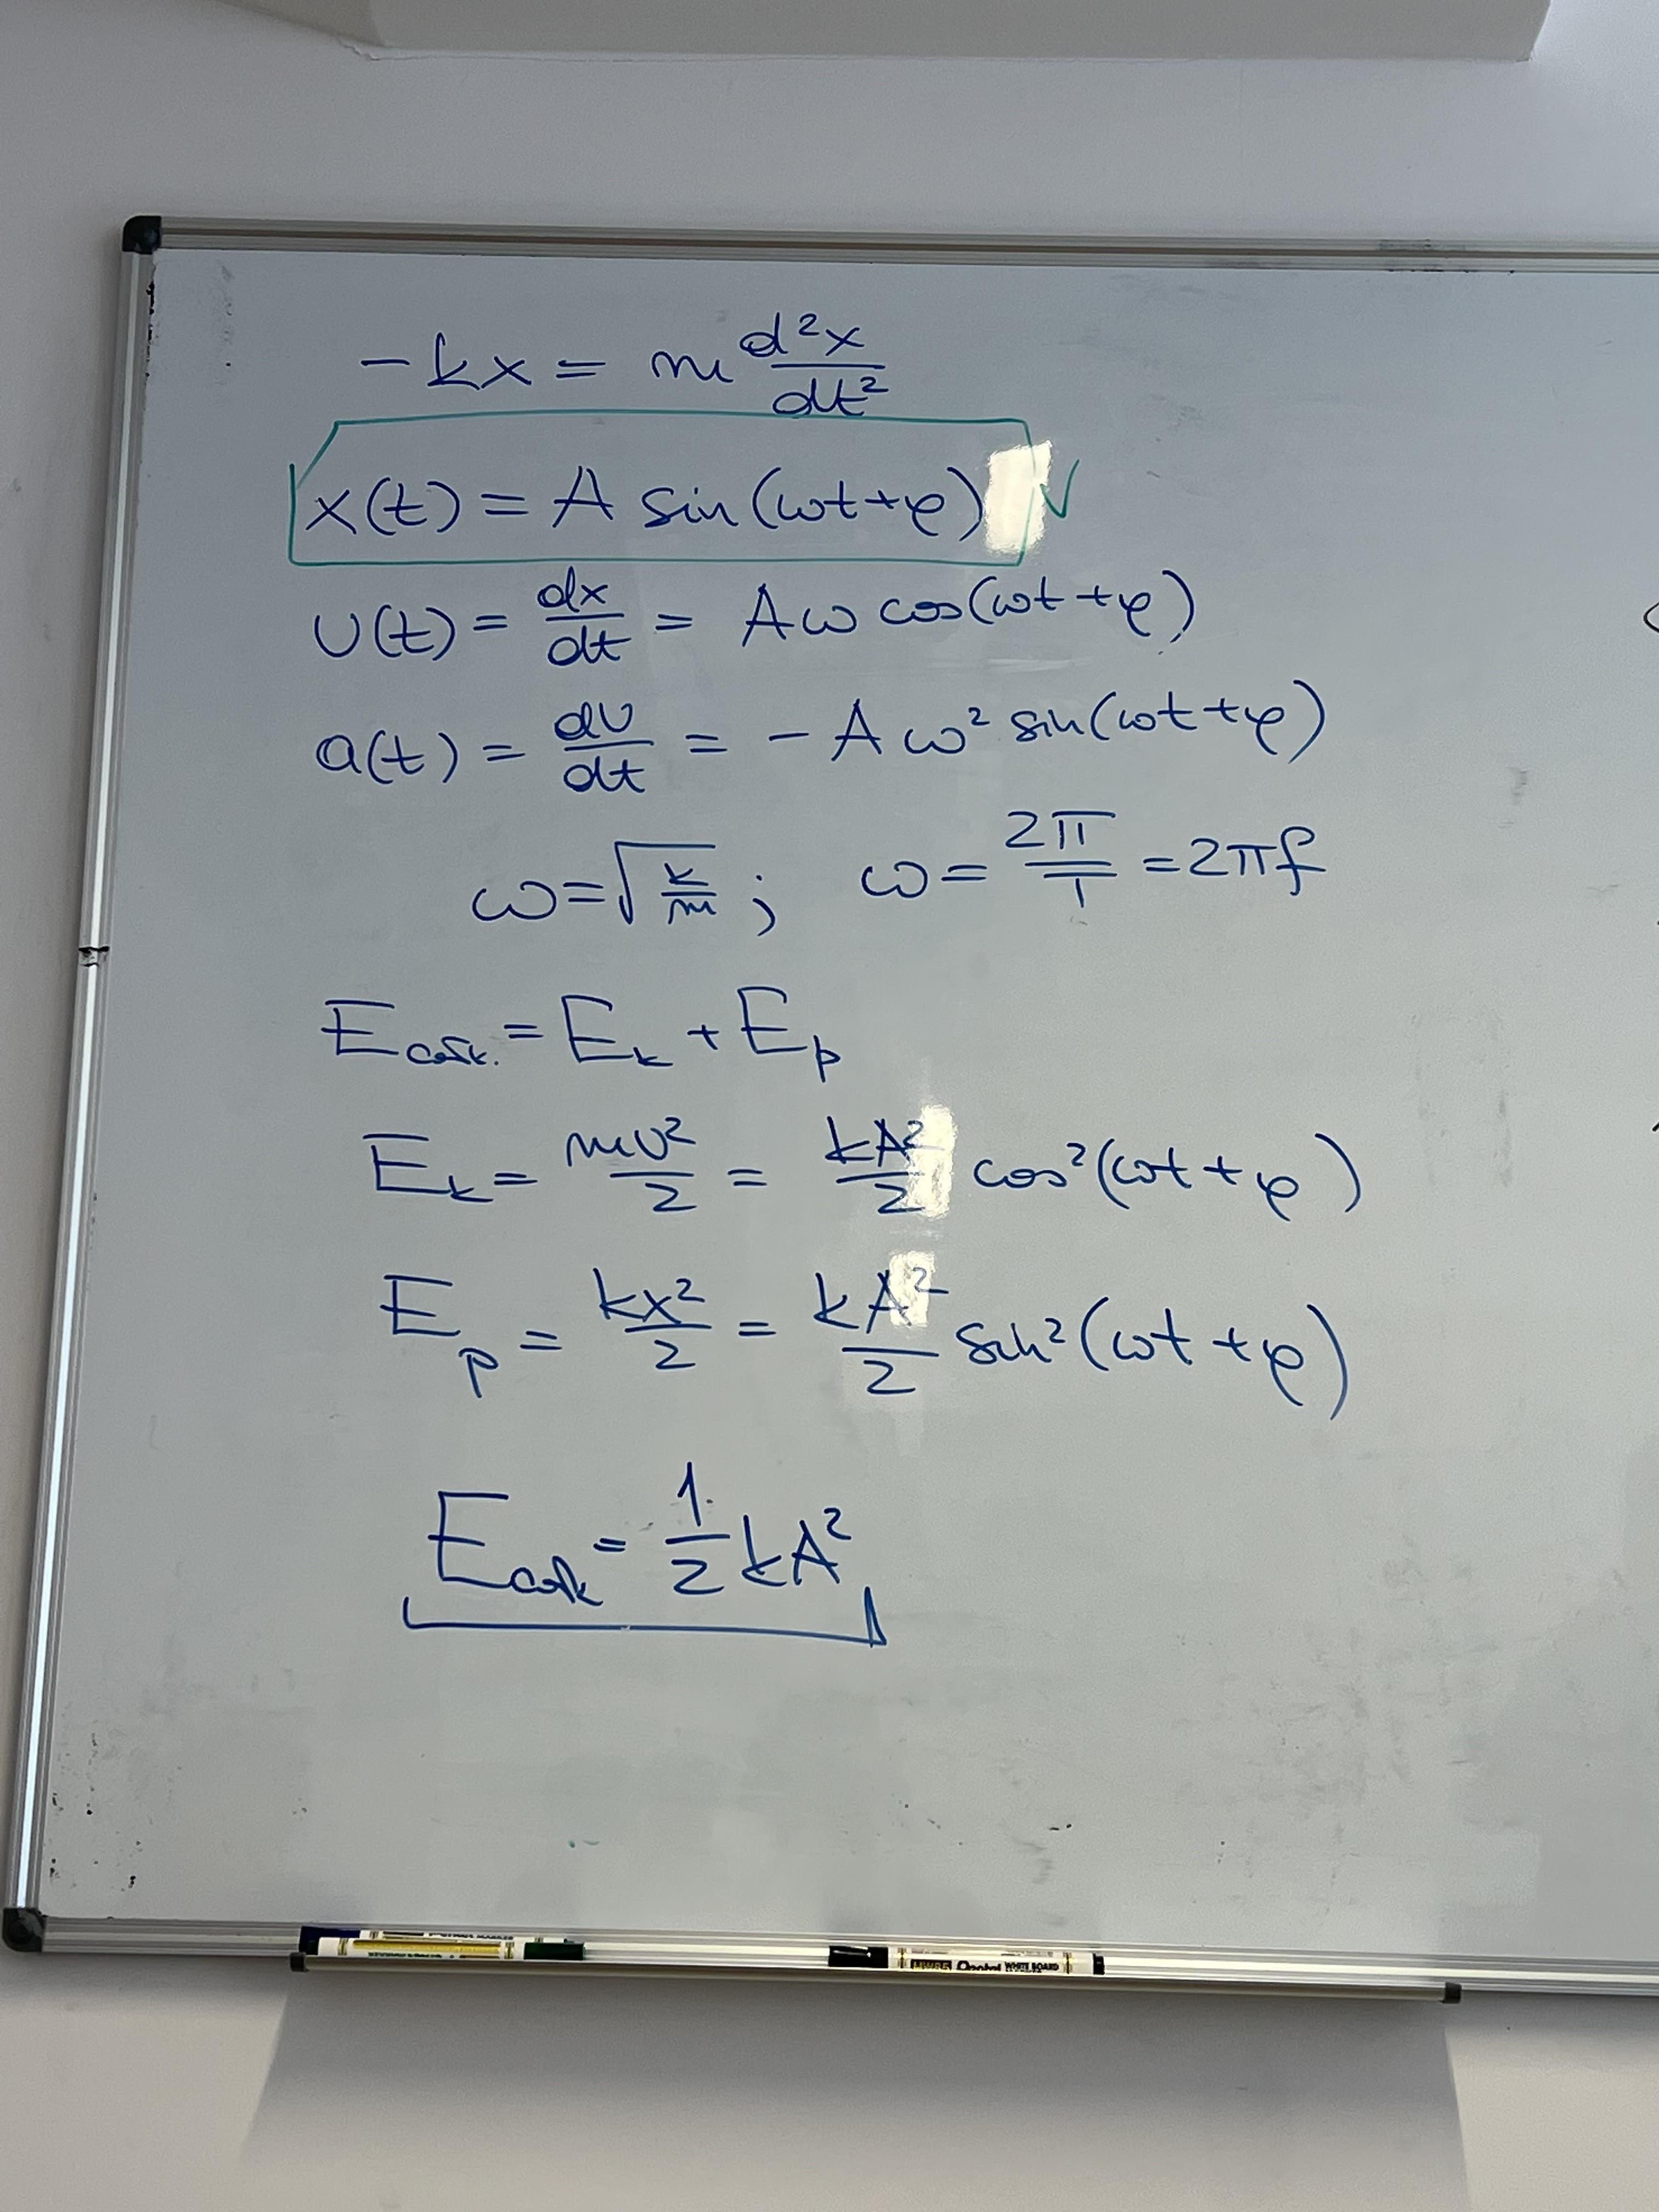 -kx = m d²x/dt²
x(t) = A sin(ωt+φ) √
υ(t) = dx/dt = Aω cos(ωt+φ)
a(t) = dυ/dt = -Aω² sin(ωt+φ)
ω = √(k/m) ; ω = 2π/T = 2πf
E = E_k + E_p
E_k = mυ²/2 = kA²/2 cos²(ωt+φ)
E_p = kx²/2 = kA²/2 sin²(ωt+φ)
E = 1/2 kA²
WHITE BOARD